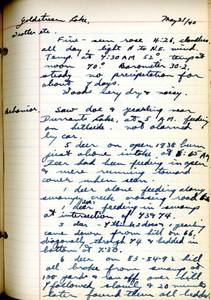 Goldstream Lake, May 21/40
Weather etc
Fine - sun rose 4:26, cloudless
all day, light N to NE. wind.
Temp. at 4:30 AM 52° temp at
noon 70° Barometer 30.2
steady no precipitation for
about 7 days.
Woods very dry & noisy.
Behavior. Saw doe & yearling near
Durrant Lake, at 5 AM. feeding
on hillside. not alarmed
by car.
5 deer on open 1938 burn
just above intake at 8:45 AM
Deer had been feeding in open
& were running toward
cover when seen.
1 deer alone feeding along
swampy creek crossing road
1 deer feeding in
at intersection of 73 & 74.
3 deer - & yearling
came down from hill on 66,
diagonally through 74 & bedded in
bottom at 73
6 deer on 83-84-92 hill
all broke from swamp
100 yards then off and hill
I followed slowly & 20 minutes
later found the all bedded